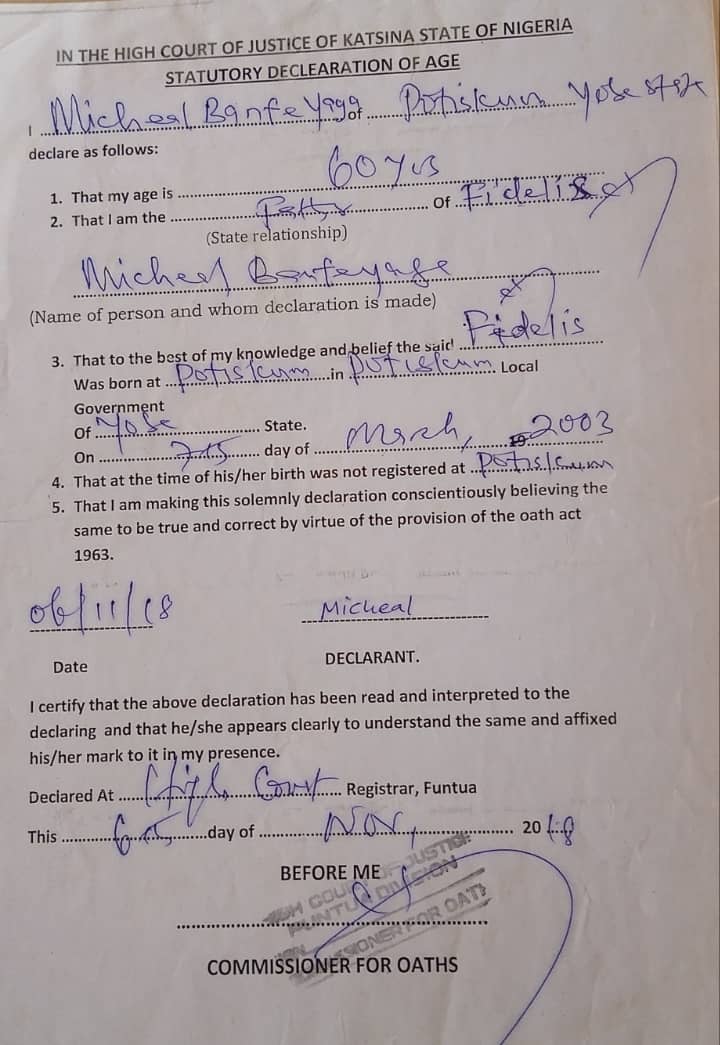 IN THE HIGH COURT OF JUSTICE OF KATSINA STATE OF NIGERIA
STATUTORY DECLEARATION OF AGE
I Micheal Banfe Yaga of Potiskum Yobe state
declare as follows:
1. That my age is 60 yrs
2. That I am the Father Of Fidelis
(State relationship)
Micheal Banfeyaga
(Name of person and whom declaration is made)
3. That to the best of my knowledge and belief the said Fidelis
Was born at Potiskum in Potiskum Local
Government
Of Yobe State.
On 7th day of March, 19 2003
4. That at the time of his/her birth was not registered at Potiskum
5. That I am making this solemnly declaration conscientiously believing the
same to be true and correct by virtue of the provision of the oath act
1963.
06/11/18 Micheal
Date DECLARANT.
I certify that the above declaration has been read and interpreted to the
declaring and that he/she appears clearly to understand the same and affixed
his/her mark to it in my presence.
Declared At High Court Registrar, Funtua
This 6th day of Nov, 2018
BEFORE ME
HIGH COURT OF JUSTICE
FUNTUA DIVISION
COMMISSIONER FOR OATH
COMMISSIONER FOR OATHS